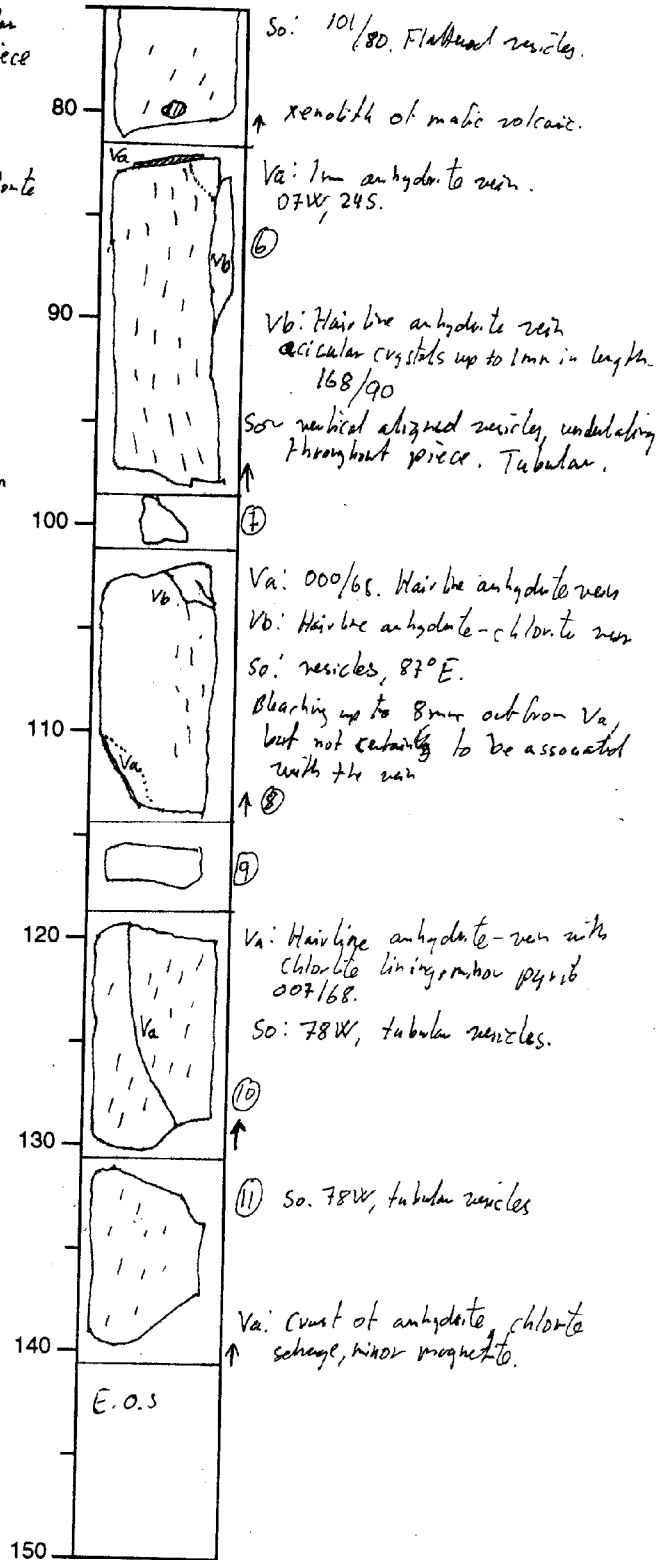 iece
So: 101/80. Flattened vesicles.
80
xenolith of mafic volcanic.
Va
Va: 1mm anhydrite vein.
07W, 24S.
6
Vb
90
Vb: Hairline anhydrite vein
acicular crystals up to 1mm in length.
168/90
So vertical aligned vesicles, undulating
throughout piece. Tubular.
100
7
Va: 000/65. Hairline anhydrite vein
Vb
Vb: Hairline anhydrite-chlorite vein
So: vesicles, 87°E.
Bleaching up to 8mm out from Va,
110
but not certainly to be associated
Va
with the vein
8
9
120
Va: Hairline anhydrite-vein with
chlorite lining, minor pyrite
007/68.
Va
So: 78W, tubular vesicles.
10
130
11 So. 78W, tubular vesicles
Va: Crust of anhydrite, chlorite
140
selvage, minor magnetite.
E.O.S
150